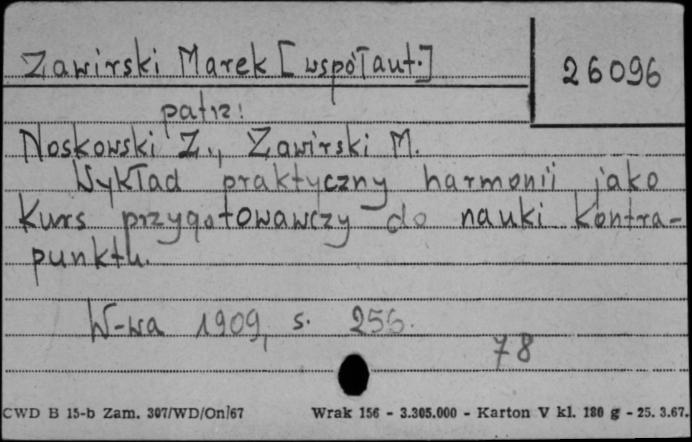 Zawirski Marek [współaut.]
26096
patrz:
Noskowski Z., Zawirski M.
Wykład praktyczny harmonii jako
kurs przygotowawczy do nauki kontra-
punktu.
W-wa 1909, s. 256.
78
CWD B 15-b Zam. 307/WD/On/67 Wrak 156 - 3.305.000 - Karton V kl. 180 g - 25. 3.67.